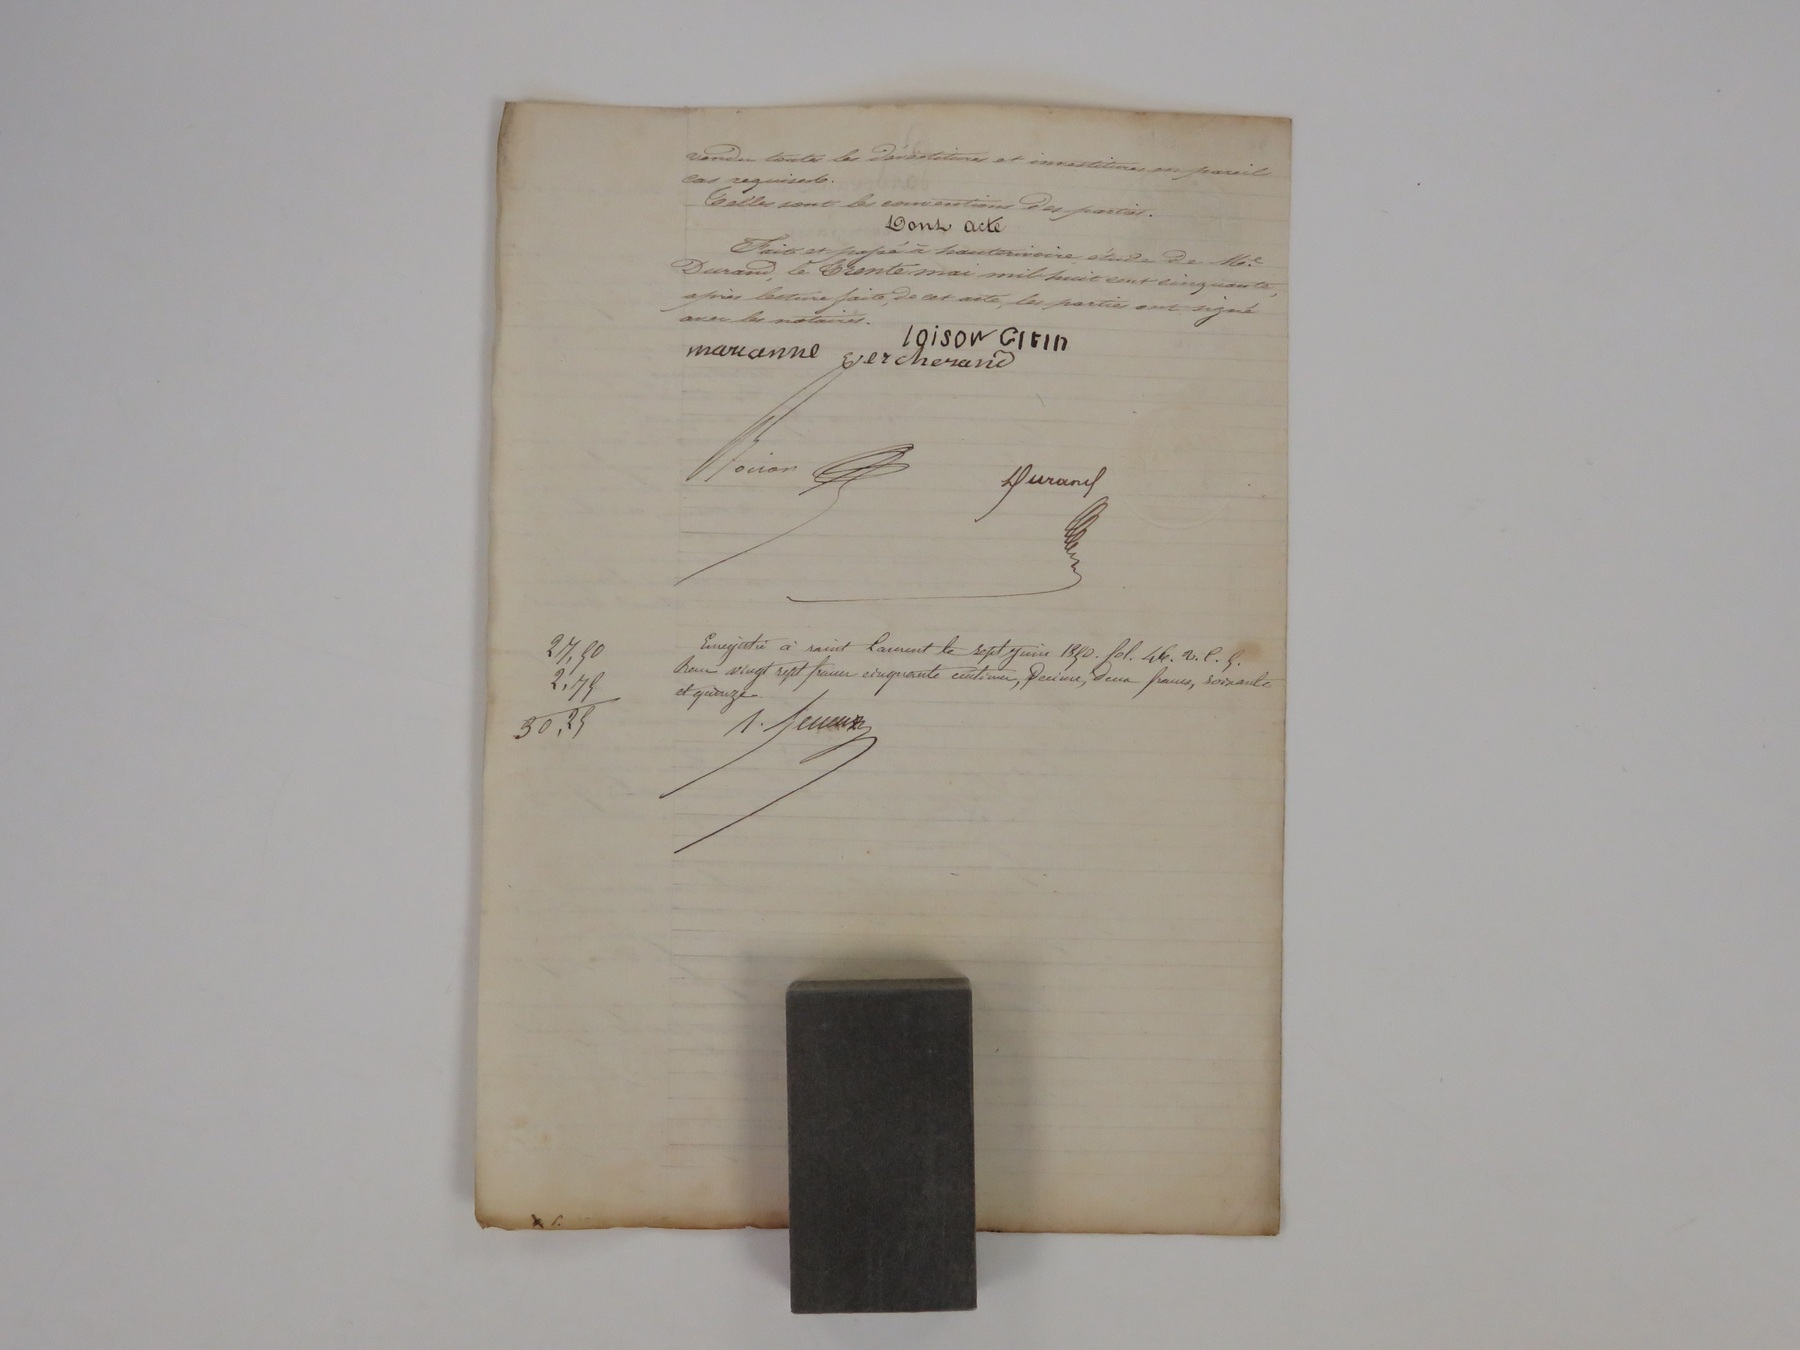 vendu toutes les dévestitures et investitures en pareil
cas requises.
Telles sont les conventions des parties.
Dont acte
Fait et passé à hauterivoire, étude de Me.
Durand, le Trente mai mil huit cent cinquante,
après lecture faite, de cet acte, les parties ont signé
avec les notaires.
loison
marianne Vercherand
Durand
27,50
2,75
30,25
Enregistré à saint Laurent le sept juin 1850. fol. 46. v. c. 5.
Reçu vingt sept francs cinquante centimes, Decime, deux francs, soixante
et quinze.